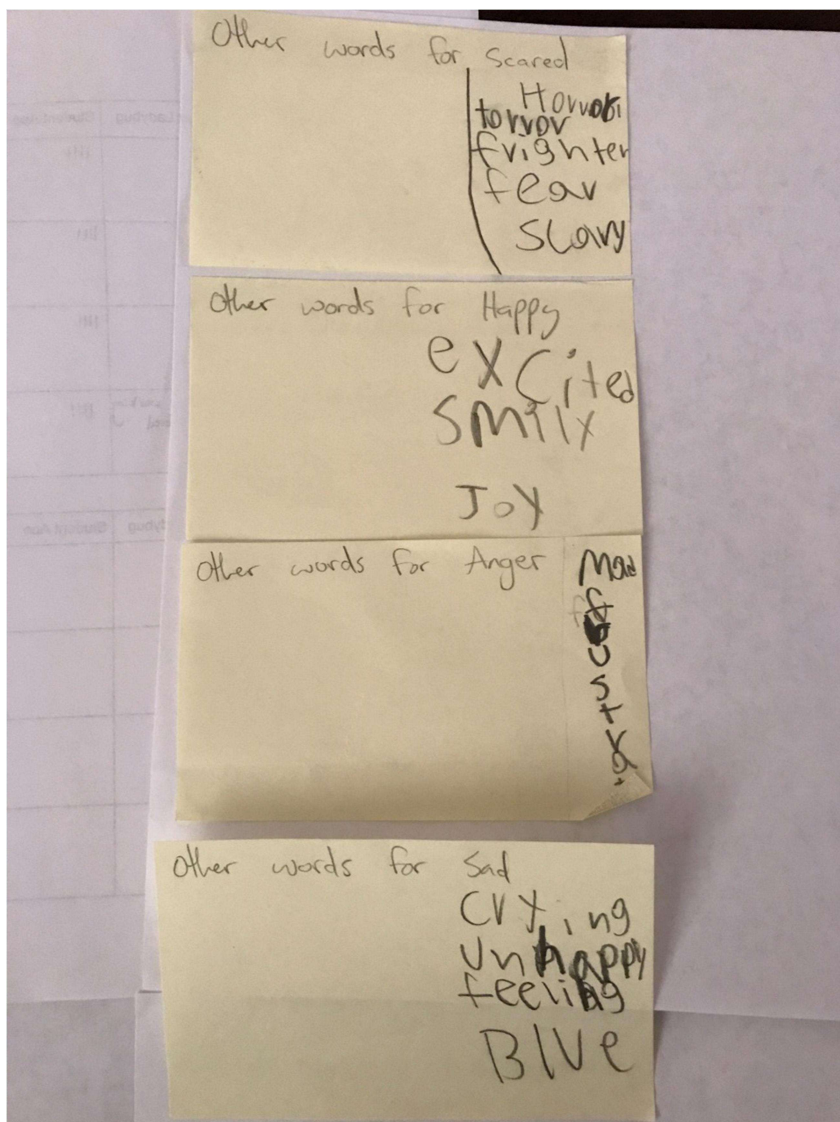 Other words for Scared
Horror
torror
frighten
fear
scary
Other words for Happy
excited
smily
Joy
Other words for Anger
Mad
Other words for Sad
crying
unhappy
feeling
Blue